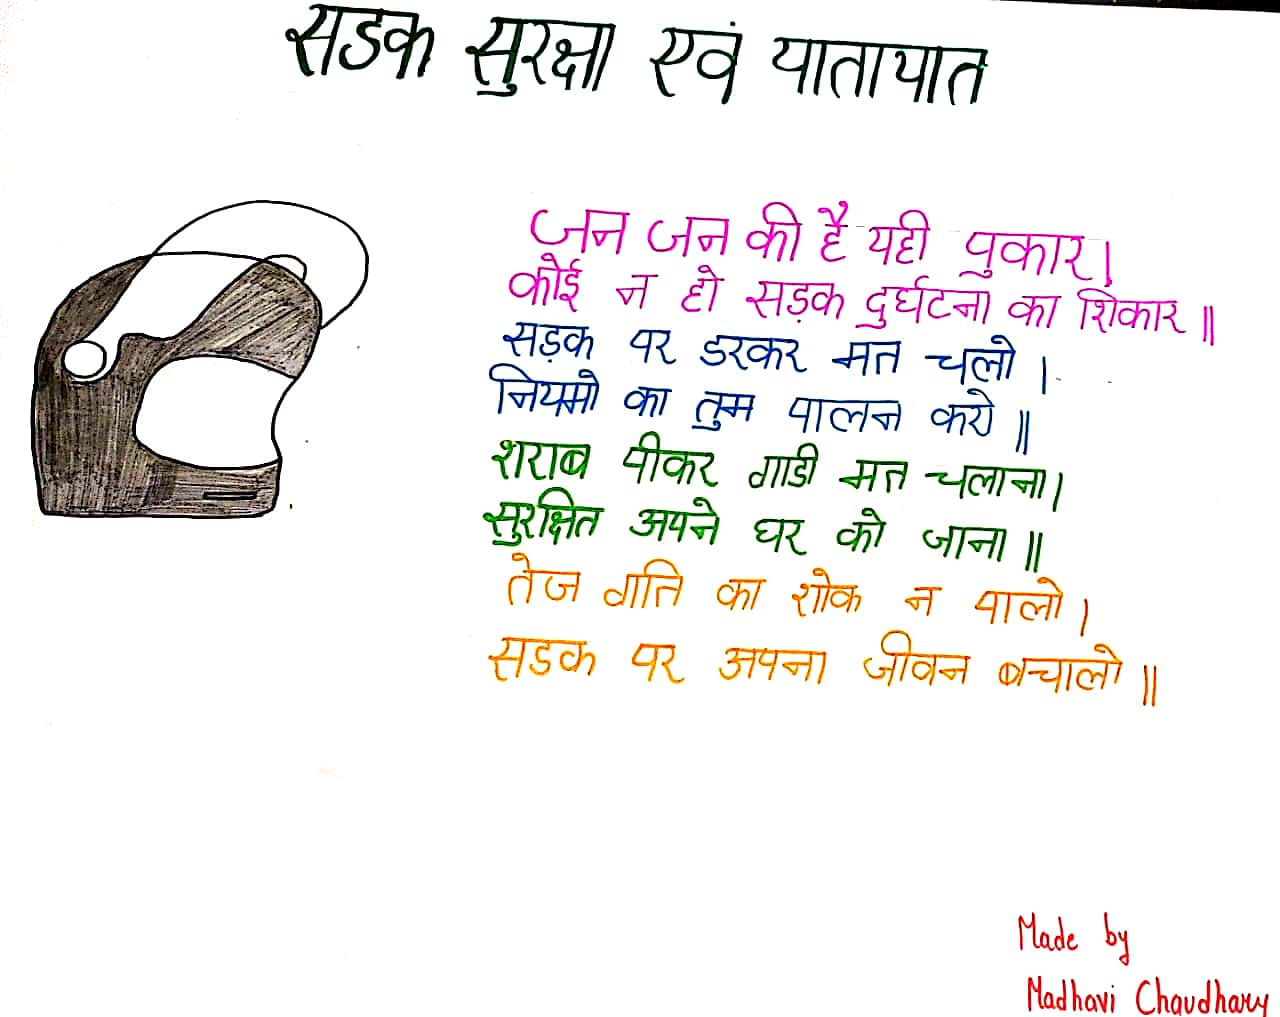 सडक सुरक्षा एवं यातायात
जन जन की है यही पुकार।
कोई न हो सड़क दुर्घटना का शिकार॥
सड़क पर डरकर मत चलो।
नियमो का तुम पालन करो॥
शराब पीकर गाडी मत चलाना।
सुरक्षित अपने घर को जाना॥
तेज गति का शोक न पालो।
सडक पर अपना जीवन बचालो॥
Made by
Madhavi Chaudhary